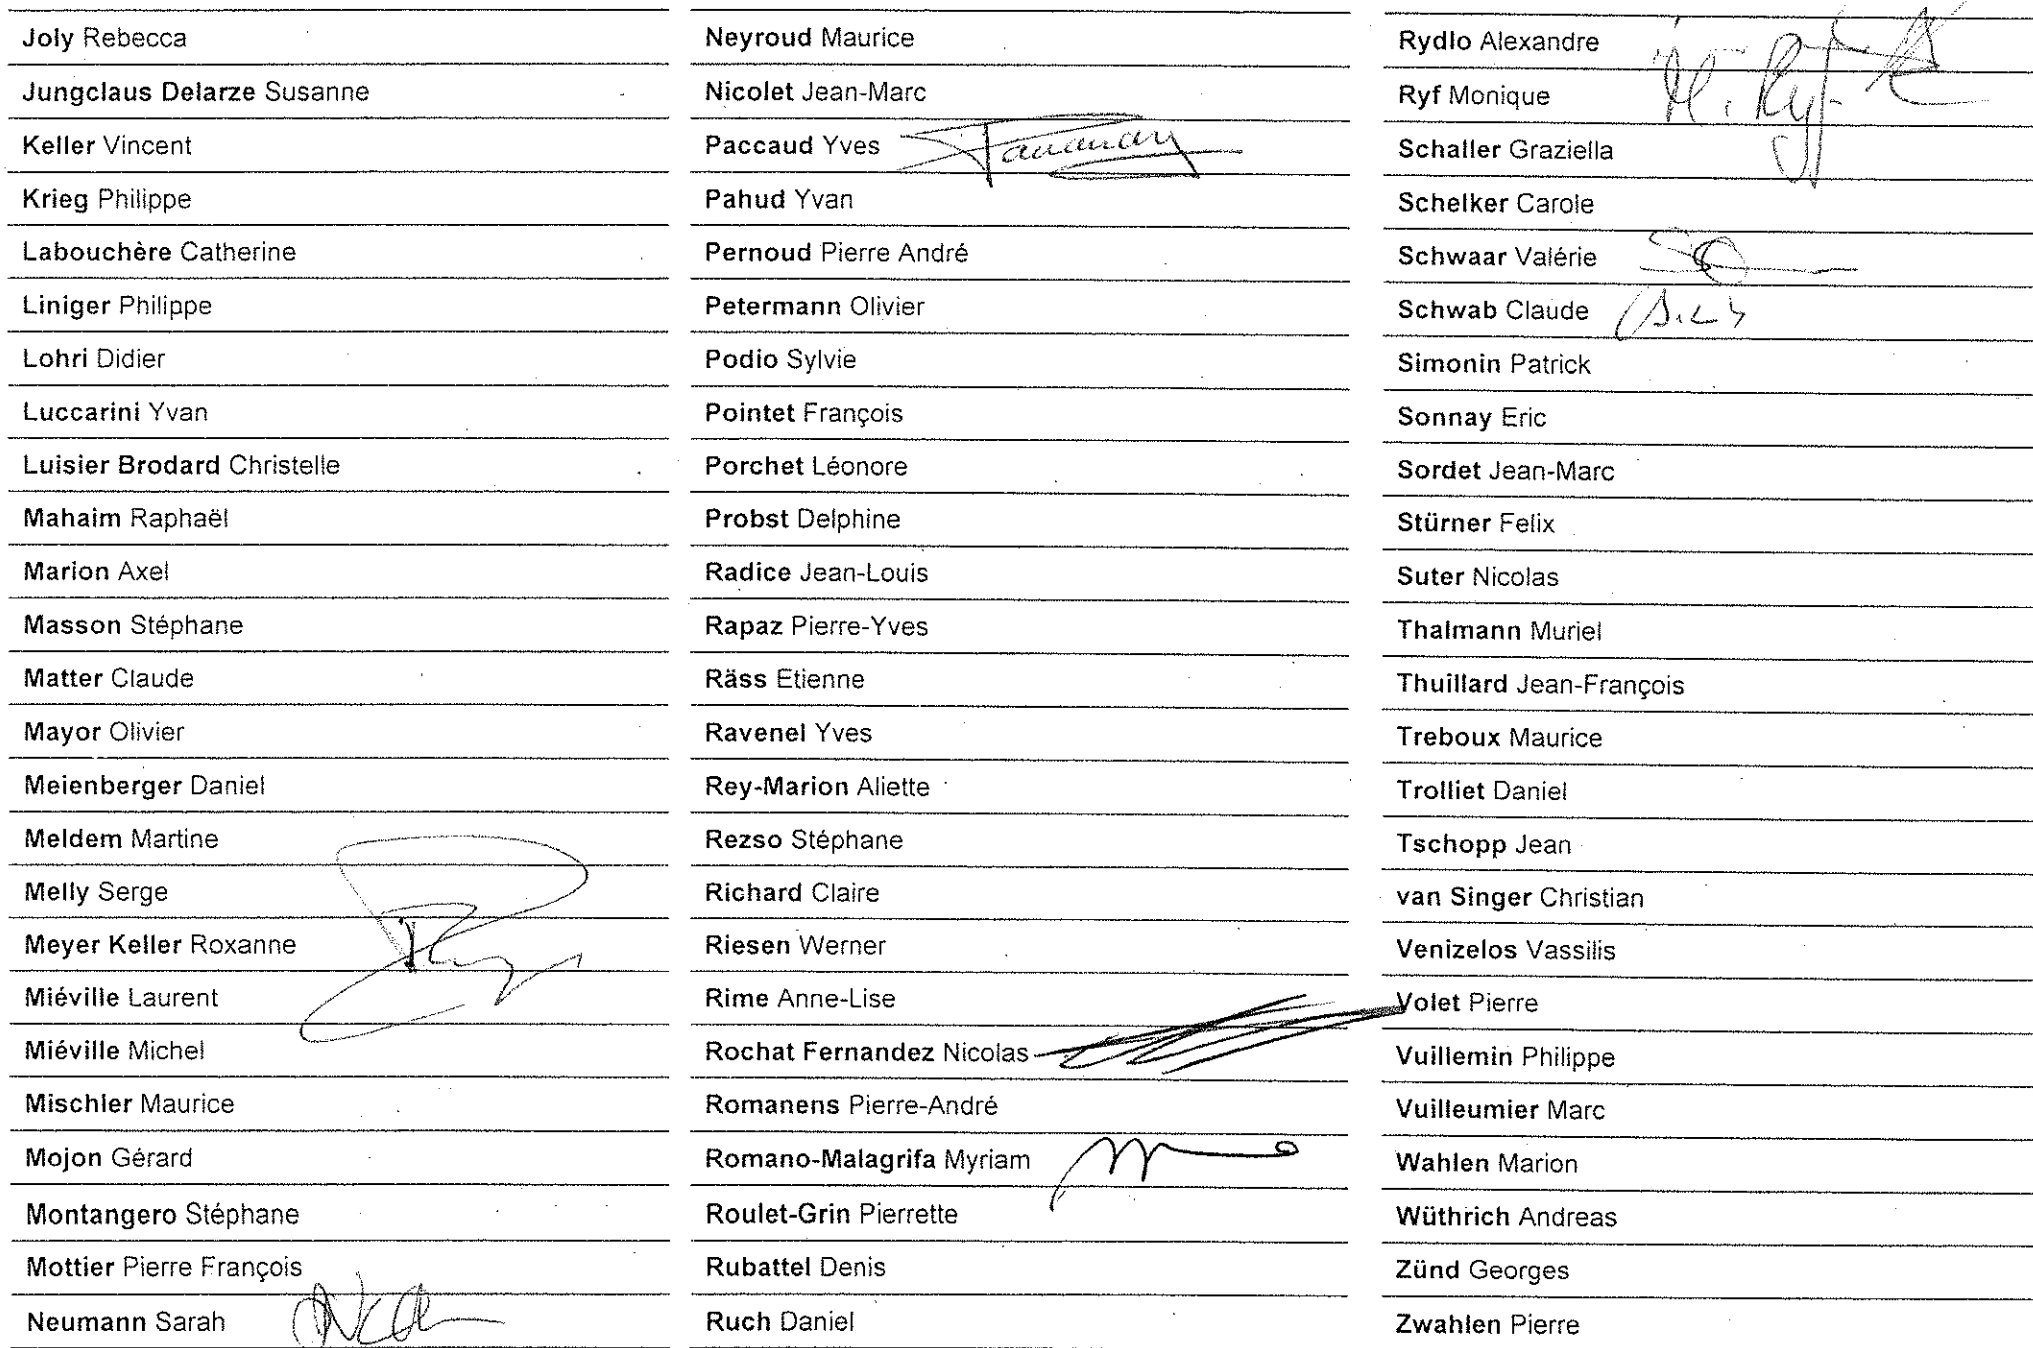 Joly Rebecca
Jungclaus Delarze Susanne
Keller Vincent
Krieg Philippe
Labouchère Catherine
Liniger Philippe
Lohri Didier
Luccarini Yvan
Luisier Brodard Christelle
Mahaim Raphaël
Marion Axel
Masson Stéphane
Matter Claude
Mayor Olivier
Meienberger Daniel
Meldem Martine
Melly Serge
Meyer Keller Roxanne
Miéville Laurent
Miéville Michel
Mischler Maurice
Mojon Gérard
Montangero Stéphane
Mottier Pierre François
Neumann Sarah
Neyroud Maurice
Nicolet Jean-Marc
Paccaud Yves
Pahud Yvan
Pernoud Pierre André
Petermann Olivier
Podio Sylvie
Pointet François
Porchet Léonore
Probst Delphine
Radice Jean-Louis
Rapaz Pierre-Yves
Räss Etienne
Ravenel Yves
Rey-Marion Aliette
Rezso Stéphane
Richard Claire
Riesen Werner
Rime Anne-Lise
Rochat Fernandez Nicolas
Romanens Pierre-André
Romano-Malagrifa Myriam
Roulet-Grin Pierrette
Rubattel Denis
Ruch Daniel
Rydlo Alexandre
Ryf Monique M. Ryf
Schaller Graziella
Schelker Carole
Schwaar Valérie
Schwab Claude
Simonin Patrick
Sonnay Eric
Sordet Jean-Marc
Stürner Felix
Suter Nicolas
Thalmann Muriel
Thuillard Jean-François
Treboux Maurice
Trolliet Daniel
Tschopp Jean
van Singer Christian
Venizelos Vassilis
Volet Pierre
Vuillemin Philippe
Vuilleumier Marc
Wahlen Marion
Wüthrich Andreas
Zünd Georges
Zwahlen Pierre